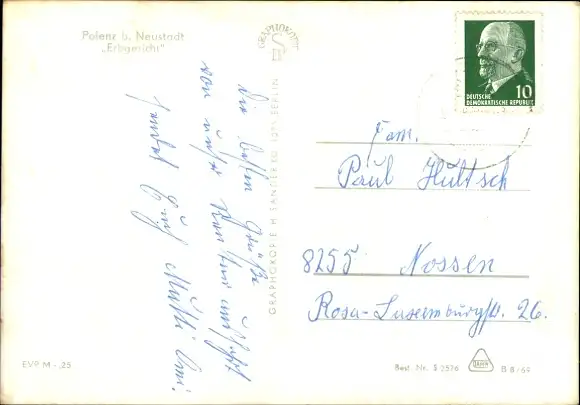 Polenz b. Neustadt
„Erbgericht"
GRAPHOKOPIE
10
DEUTSCHE
DEMOKRATISCHE REPUBLIK
Die besten Grüße
von unserer
sendet Euch Mutti Omi.
GRAPHOKOPIE H. SANDER KG 1055 BERLIN
Fam.
Paul Hultsch
8255 Nossen
Rosa-Luxemburgstr. 26.
EVP M -,25
Best. Nr. S 2576
B 8/69